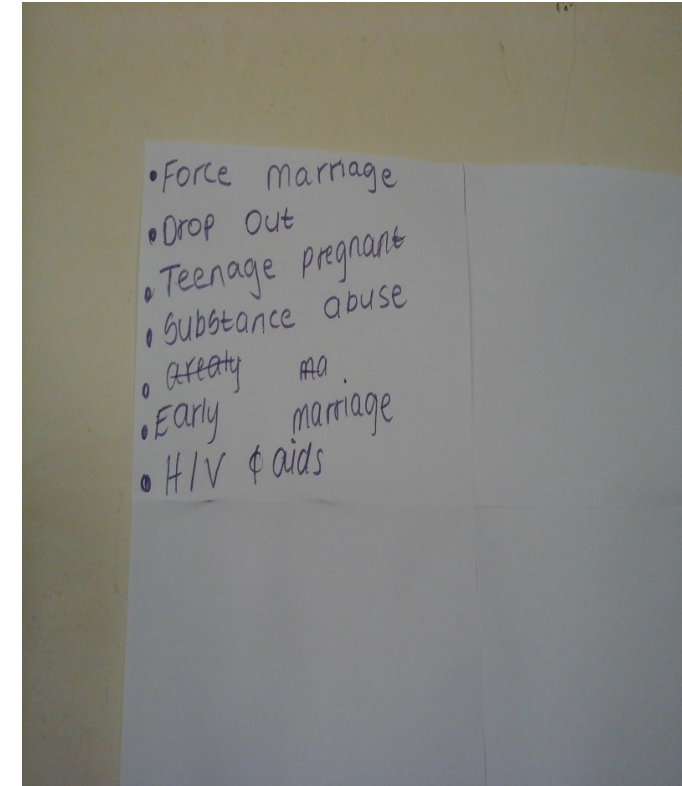 • Force marriage
• Drop out
• Teenage pregnant
• Substance abuse
• ma
• Early marriage
• HIV & aids